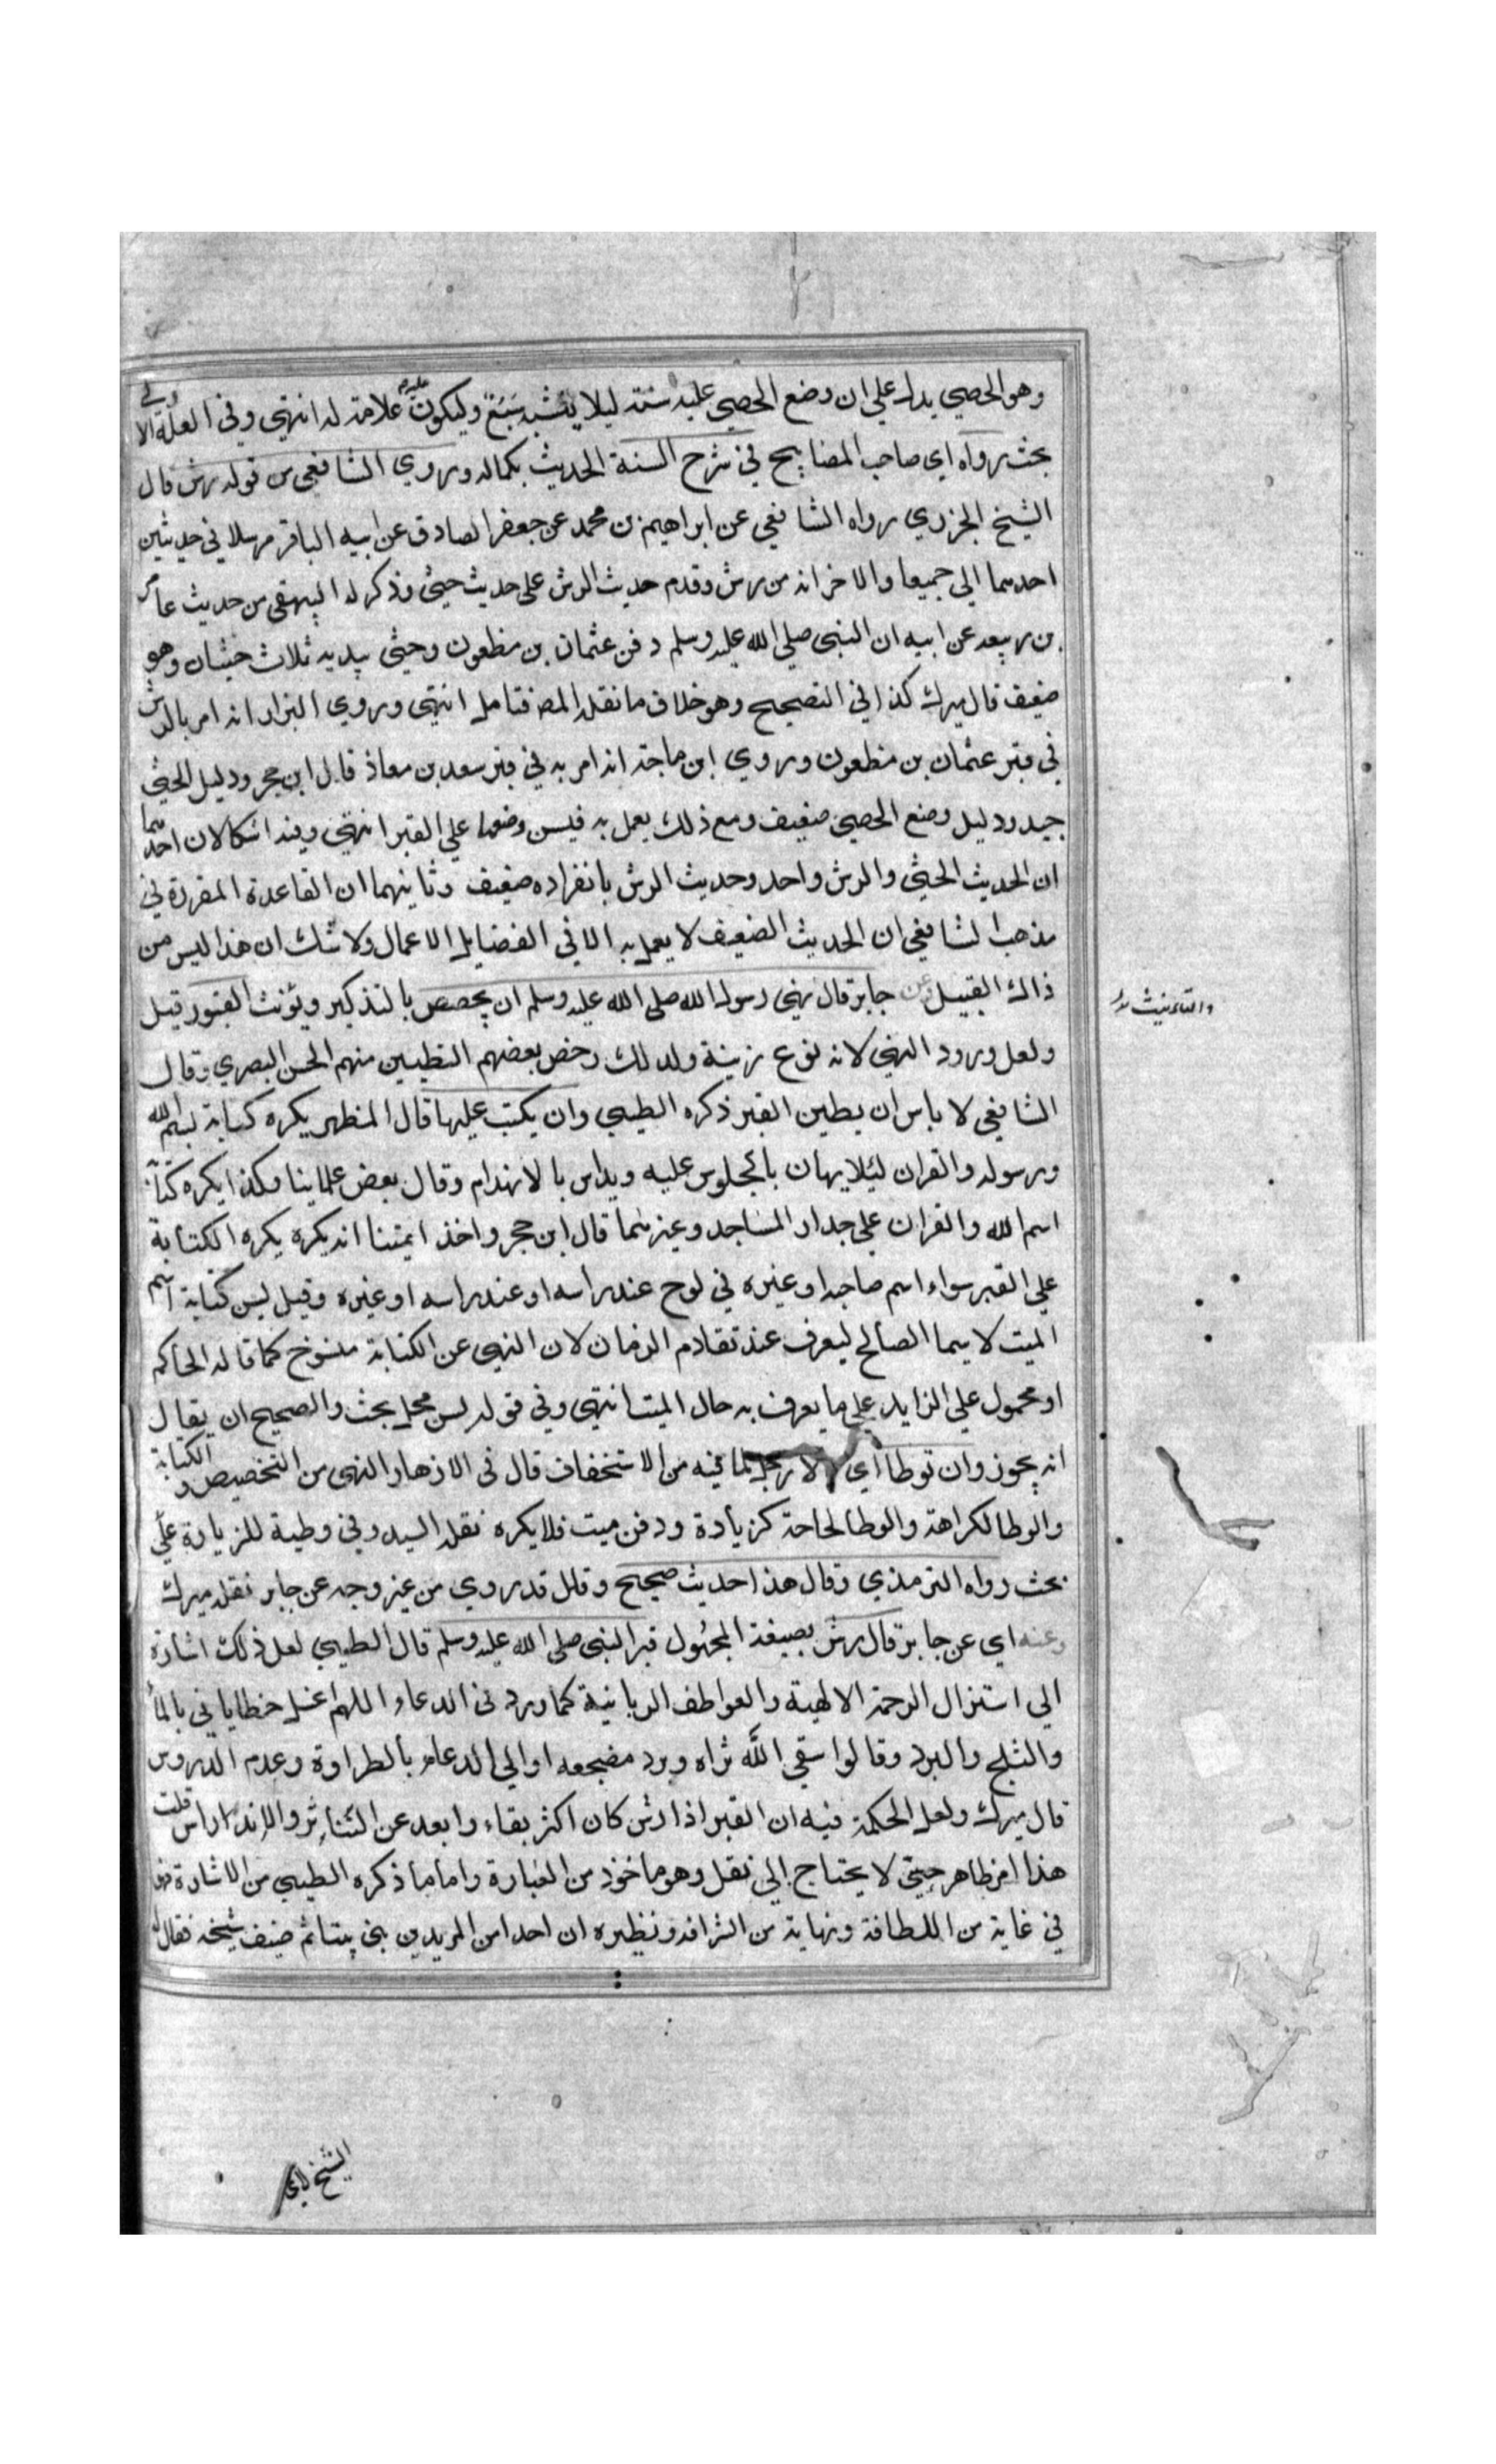 وهو الحصي يدل علي ان وضع الحصي عليه سنة ليلا ينبشه سبع وليكون علامة له انتهي وفي العلة الاولي
بحث رواه اي صاحب المصابيح في شرح السنة الحديث بكماله وروي الشافعي من قوله رش قال
الشيخ الجزري رواه الشافعي عن ابراهيم بن محمد عن جعفر الصادق عن ابيه الباقر مرسلا في حديثين
احدهما الي جميعا والاخر انه من رش وقدم حديث الرش على حديث حيثي وذكر له البيهقي من حديث عامر
بن ربيعه عن ابيه ان النبي صلي الله عليه وسلم دفن عثمان بن مظعون وحثي بيديه ثلاث حثيات وهو
ضعيف قال ميرك كذا في التصحيح وهو خلاف ما نقله المصر فتامل انتهي وروي البزار انه امر بالرش
في قبر عثمان بن مظعون وروي ابن ماجة انه امر به في قبر سعد بن معاذ قال ابن حجر ودليل الحثي
جيد ودليل وضع الحصي ضعيف ومع ذلك يعمل به فيسن وضعها علي القبر انتهي وفيه اشكالان احدهما
ان الحديث الحثي والرش واحد وحديث الرش بانفراده ضعيف وثانيهما ان القاعدة المقررة في
مذهب الشافعي ان الحديث الضعيف لا يعمل به الا في الفضايل الاعمال ولا شك ان هذا ليس من
ذاك القبيل وعن جابر قال نهي رسول الله صلى الله عليه وسلم ان يجصص بالتذكير ويؤنث القبور قيل
والتانيث
ولعل ورود النهي لانه نوع زينة ولذلك رخص بعضهم التطيين منهم الحسن البصري وقال
الشافعي لا باس ان يطين القبر ذكره الطيبي وان يكتب عليها قال المظهر يكره كتابة اسم الله
ورسوله والقران ليلا يهان بالجلوس عليه ويداس بالانهدام وقال بعض علماينا وكذا يكره كتابة
اسم الله والقران علي جدار المساجد وغيرهما قال ابن حجر واخذ ايمتنا انه يكره يكره الكتابة
علي القبر سواء اسم صاحبه او غيره في لوح عند راسه او عند راسه او غيره وقيل يسن كتابة اسم
الميت لا سيما الصالح ليعرف عند تقادم الزمان لان النهي عن الكتابة منسوخ كما قاله الحاكم
او محمول علي الزايد علي ما يعرف به حال الميت انتهي وفي قوله يسن محل بحث والصحيح ان يقال
انه يجوز وان توطا اي لما فيه من الاستخفاف قال في الازهار النهي من التخصيص والكتابة
والوطا لكراهة والوطا لحاجة كزيادة ودفن ميت فلا يكره نقله السيد وفي وطية للزيارة علي
بحث رواه الترمذي وقال هذا حديث صحيح وقال قد روي من غير وجه عن جابر نقله ميرك
وعنه اي عن جابر قال رش بصيغة المجهول قبر النبي صلى الله عليه وسلم قال الطيبي لعل ذلك اشارة
الي استنزال الرحمة الالهية والعواطف الربانية كما ورد في الدعاء اللهم اغسل خطاياني بالماء
والثلج والبرد وقالوا سقي الله ثراه وبرد مضجعه او الي الدعاء بالطراوة وعدم الدروس
قال ميرك ولعل الحكمة فيه ان القبر اذا رش كان اكثر بقاء وابعد عن التناثر والاندراس قلت
هذا امر ظاهر حيثي لا يحتاج الي نقل وهو ماخوذ من العبارة واما ما ذكره الطيبي من الاشارة فهو
في غاية من اللطافة ونهاية من الشرافة ونظيره ان احدا من المريدين بني بيتا ثم ضيف شيخه فقال له
الشيخ